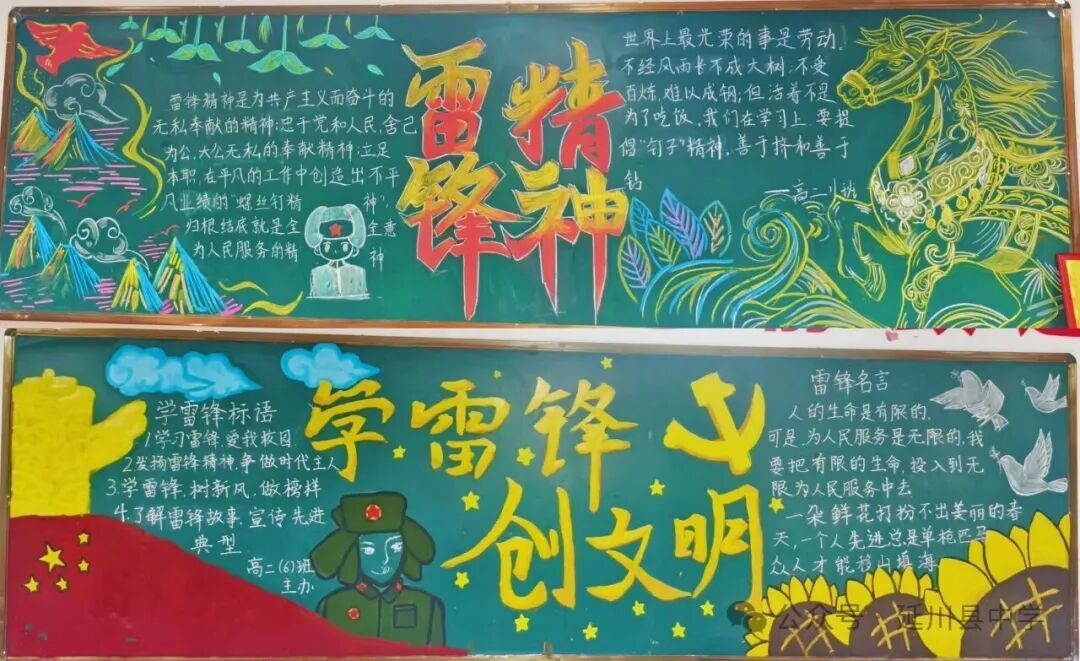 雷锋精神是为共产主义而奋斗的
无私奉献的精神;忠于党和人民,舍己
为公,大公无私的奉献精神;立足
本职,在平凡的工作中创造出不平
凡业绩的"螺丝钉精神".
归根结底就是全全意
为人民服务的精神
雷锋
精神
世界上最光荣的事是劳动.
不经风雨长不成大树;不受
百炼,难以成钢;但活着不是
为了吃饭、我们在学习上,要提
倡"钉子"精神,善于挤和善于
钻
学雷锋标语
1.学习雷锋,爱我校园
2.发扬雷锋精神,争做时代主人
3.学雷锋,树新风,做榜样
4.了解雷锋故事,宣传先进
典型
高二(6)班
主办
学雷锋
创文明
雷锋名言
人的生命是有限的.
可是,为人民服务是无限的,我
要把有限的生命,投入到无
限为人民服务中去
一朵鲜花打扮不出美丽的春
天,一个人先进总是单枪匹马
众人才能移山填海
公众号 延川县中学